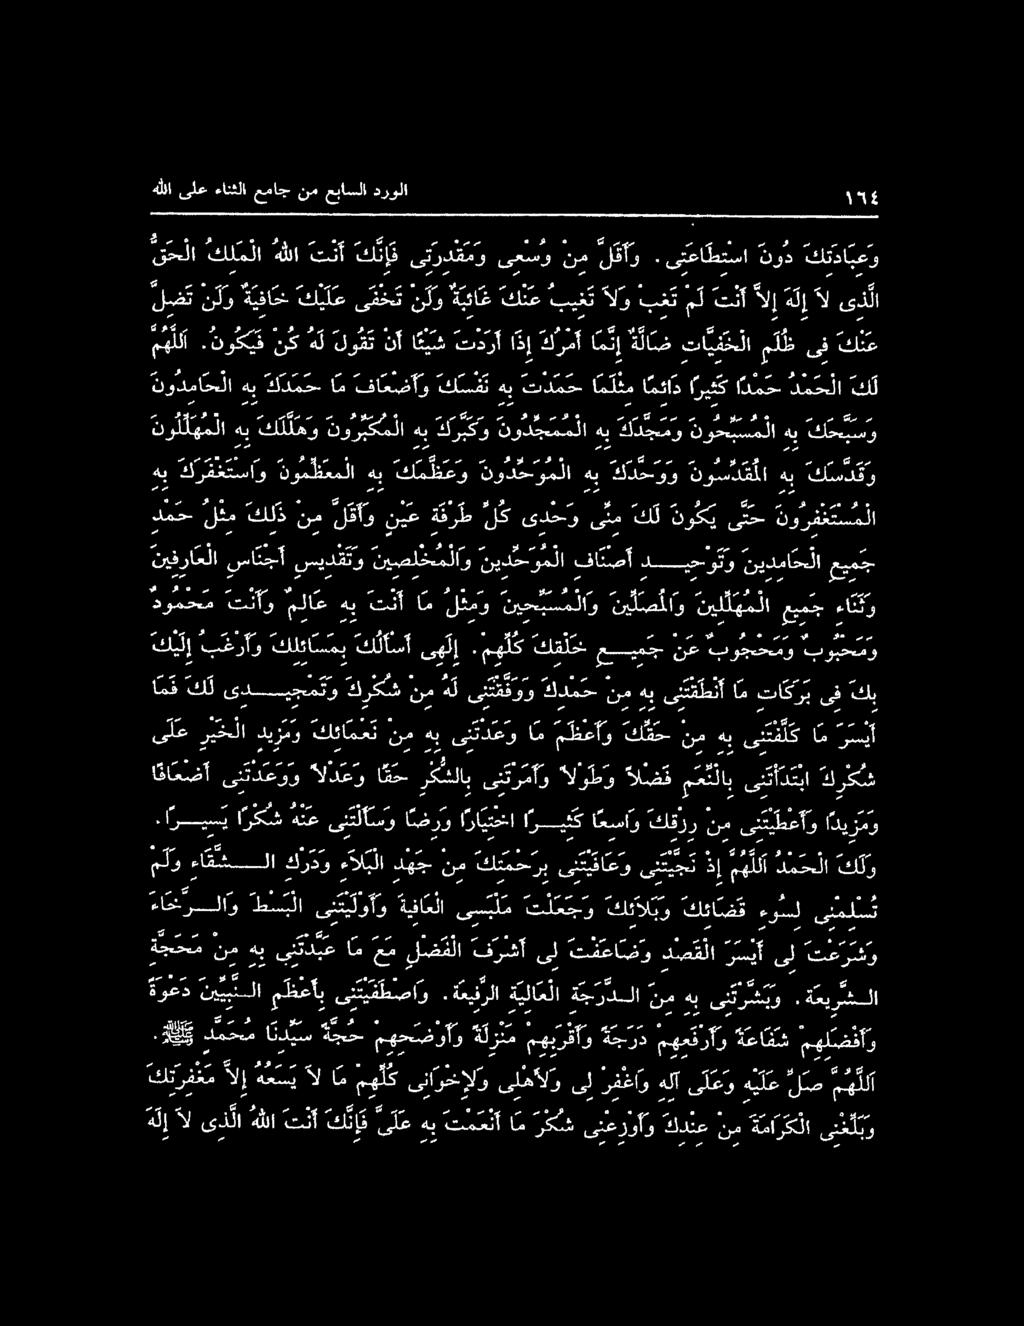 ١٦٤ الورد السابع من جامع الثناء على الله
وَعِبَادَتِكَ دُونَ اسْتِطَاعَتِى. وَأَقَلَّ مِنْ وُسْعِى وَمَقْدِرَتِى فَإِنَّكَ أَنْتَ اللهُ الْمَلِكُ الْحَقُّ
الَّذِى لاَ إِلَهَ إِلاَّ أَنْتَ لَمْ تَغِبْ وَلاَ تَغِيبُ عَنْكَ غَائِبَةٌ وَلَنْ تَخْفَى عَلَيْكَ خَافِيَةٌ وَلَنْ تَضِلَّ
عَنْكَ فِى ظُلَمِ الْخَفِيَّاتِ ضَالَّةٌ إِنَّمَا أَمْرُكَ إِذَا أَرَدْتَ شَيْئًا أَنْ تَقُولَ لَهُ كُنْ فَيَكُونُ. اَللَّهُمَّ
لَكَ الْحَمْدُ حَمْدًا كَثِيرًا دَائِمًا مِثْلَمَا حَمَدْتَ بِهِ نَفْسَكَ وَأَضْعَافَ مَا حَمَدَكَ بِهِ الْحَامِدُونَ
وَسَبَّحَكَ بِهِ الْمُسَبِّحُونَ وَمَجَّدَكَ بِهِ الْمُمَجِّدُونَ وَكَبَّرَكَ بِهِ الْمُكَبِّرُونَ وَهَلَّلَكَ بِهِ الْمُهَلِّلُونَ
وَقَدَّسَكَ بِهِ الْمُقَدِّسُونَ وَوَحَّدَكَ بِهِ الْمُوَحِّدُونَ وَعَظَّمَكَ بِهِ الْمُعَظِّمُونَ وَاسْتَغْفَرَكَ بِهِ
الْمُسْتَغْفِرُونَ حَتَّى يَكُونَ لَكَ مِنِّى وَحْدِى كُلَّ طَرْفَةِ عَيْنٍ وَأَقَلَّ مِنْ ذَلِكَ مِثْلُ حَمْدِ
جَمِيعِ الْحَامِدِينَ وَتَوْحِيـــدِ أَصْنَافِ الْمُوَحِّدِينَ وَالْمُخْلِصِينَ وَتَقْدِيسِ أَجْنَاسِ الْعَارِفِينَ
وَثَنَاءِ جَمِيعِ الْمُهَلِّلِينَ وَالْمُصَلِّينَ وَالْمُسَبِّحِينَ وَمِثْلُ مَا أَنْتَ بِهِ عَالِمٌ وَأَنْتَ مَحْمُودٌ
وَمَحْبُوبٌ وَمَحْجُوبٌ عَنْ جَمِيـــعِ خَلْقِكَ كُلِّهِمْ. إِلَهِى أَسْأَلُكَ بِمَسَائِلِكَ وَأَرْغَبُ إِلَيْكَ
بِكَ فِى بَرَكَاتِ مَا أَنْطَقْتَنِى بِهِ مِنْ حَمْدِكَ وَوَفَّقْتَنِى لَهُ مِنْ شُكْرِكَ وَتَمْجِيـــدِى لَكَ فَمَا
أَيْسَرَ مَا كَلَّفْتَنِى بِهِ مِنْ حَقِّكَ وَأَعْظَمَ مَا وَعَدْتَنِى بِهِ مِنْ نَعْمَائِكَ وَمَزِيدِ الْخَيْرِ عَلَى
شُكْرِكَ ابْتَدَأْتَنِى بِالنِّعَمِ فَضْلاً وَطَوْلاً وَأَمَرْتَنِى بِالشُّكْرِ حَقًّا وَعَدْلاً وَوَعَدْتَنِى أَضْعَافًا
وَمَزِيدًا وَأَعْطَيْتَنِى مِنْ رِزْقِكَ وَاسِعًا كَثِيـــرًا اخْتِيَارًا وَرِضًا وَسَأَلْتَنِى عَنْهُ شُكْرًا يَسِيـــرًا.
وَلَكَ الْحَمْدُ اَللَّهُمَّ إِذْ نَجَّيْتَنِى وَعَافَيْتَنِى بِرَحْمَتِكَ مِنْ جَهْدِ الْبَلاَءِ وَدَرْكِ الـــشَّقَاءِ وَلَمْ
تُسْلِمْنِى لِسُوءِ قَضَائِكَ وَبَلاَئِكَ وَجَعَلْتَ مَلْبَسِى الْعَافِيَةَ وَأَوْلَيْتَنِى الْبَسْطَ وَالـــرَّخَاءَ
وَشَرَعْتَ لِى أَيْسَرَ الْقَصْدِ وَضَاعَفْتَ لِى أَشْرَفَ الْفَضْلِ مَعَ مَا عَبَّدْتَنِى بِهِ مِنْ مَحَجَّةِ
الـشَّرِيعَةِ. وَبَشَّرْتَنِى بِهِ مِنَ الـدَّرَجَةِ الْعَالِيَةِ الرَّفِيعَةِ. وَاصْطَفَيْتَنِى بِأَعْظَمِ الـنَّبِيِّينَ دَعْوَةً
وَأَفْضَلِهِمْ شَفَاعَةً وَأَرْفَعِهِمْ دَرَجَةً وَأَقْرَبِهِمْ مَنْزِلَةً وَأَوْضَحِهِمْ حُجَّةً سَيِّدِنَا مُحَمَّدٍ ﷺ.
اَللَّهُمَّ صَلِّ عَلَيْهِ وَعَلَى آلِهِ وَاغْفِرْ لِى وَلأَهْلِى وَلإِخْوَانِى كُلِّهِمْ مَا لاَ يَسَعُهُ إِلاَّ مَغْفِرَتُكَ
وَبَلِّغْنِى الْكَرَامَةَ مِنْ عِنْدِكَ وَأَوْزِعْنِى شُكْرَ مَا أَنْعَمْتَ بِهِ عَلَىَّ فَإِنَّكَ أَنْتَ اللهُ الَّذِى لاَ إِلَهَ